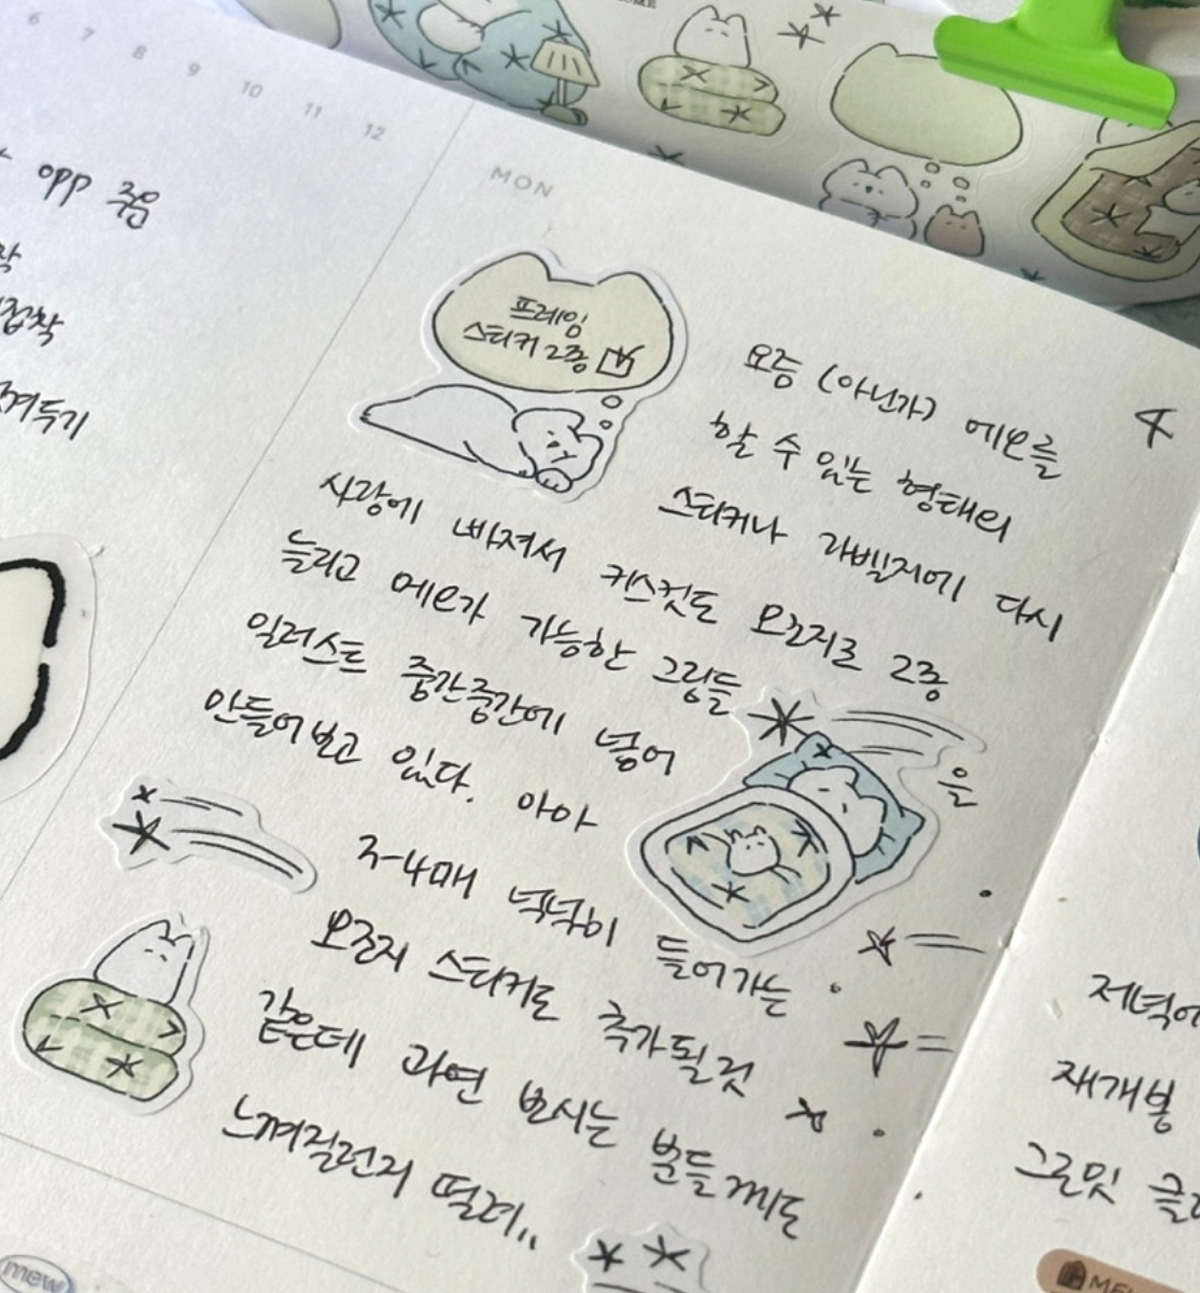 6 7 8 9 10 11 12
opp 주음
접착
겨두기
MON
프레임
스티커 2종
4
요즘 (아닌가) 메모를
할 수 있는 형태의
스티커나 라벨지에 다시
사랑에 빠져서 키스컷도 모조지로 2종
늘리고 메모가 가능한 그림들을
일러스트 중간중간에 넣어
만들어보고 있다. 아마
3-4매 넉넉히 들어가는
모조지 스티커로 추가될 것
같은데 과연 보시는 분들께도
느껴질런지 떨려..
저녁에
재개봉
그로밋
mew